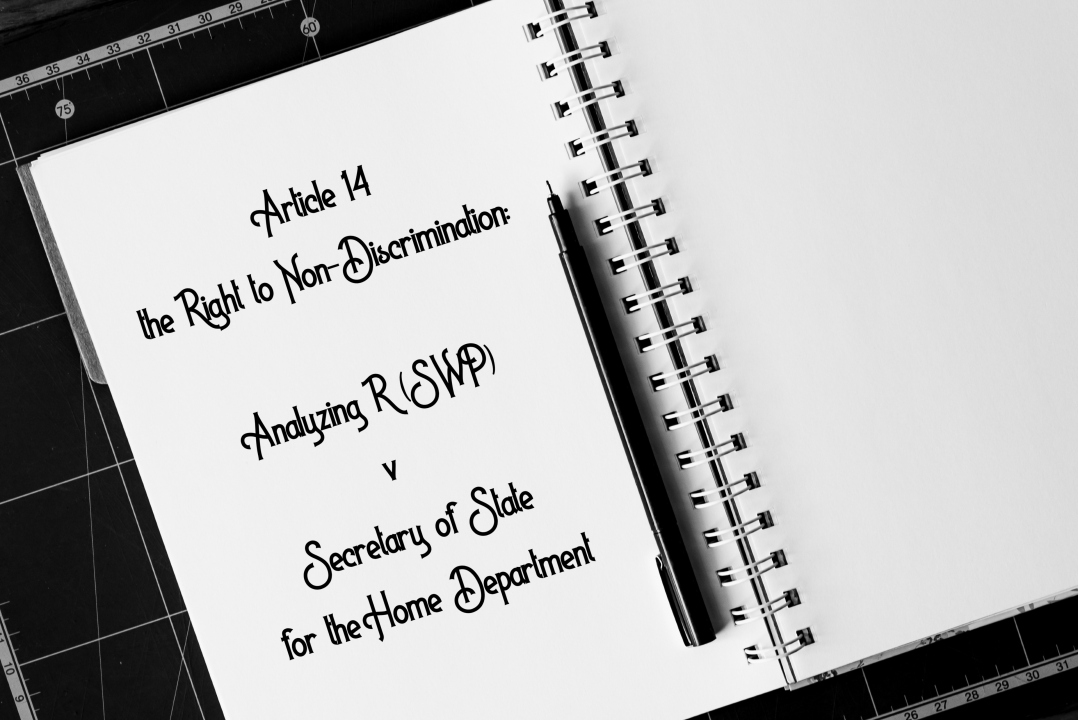 36 35 34 33 32 31 30 29
60
75
Article 14
the Right to Non-Discrimination:
Analyzing R (SWP)
v
Secretary of State
for the Home Department
10 9
26 27 28 29 30 31